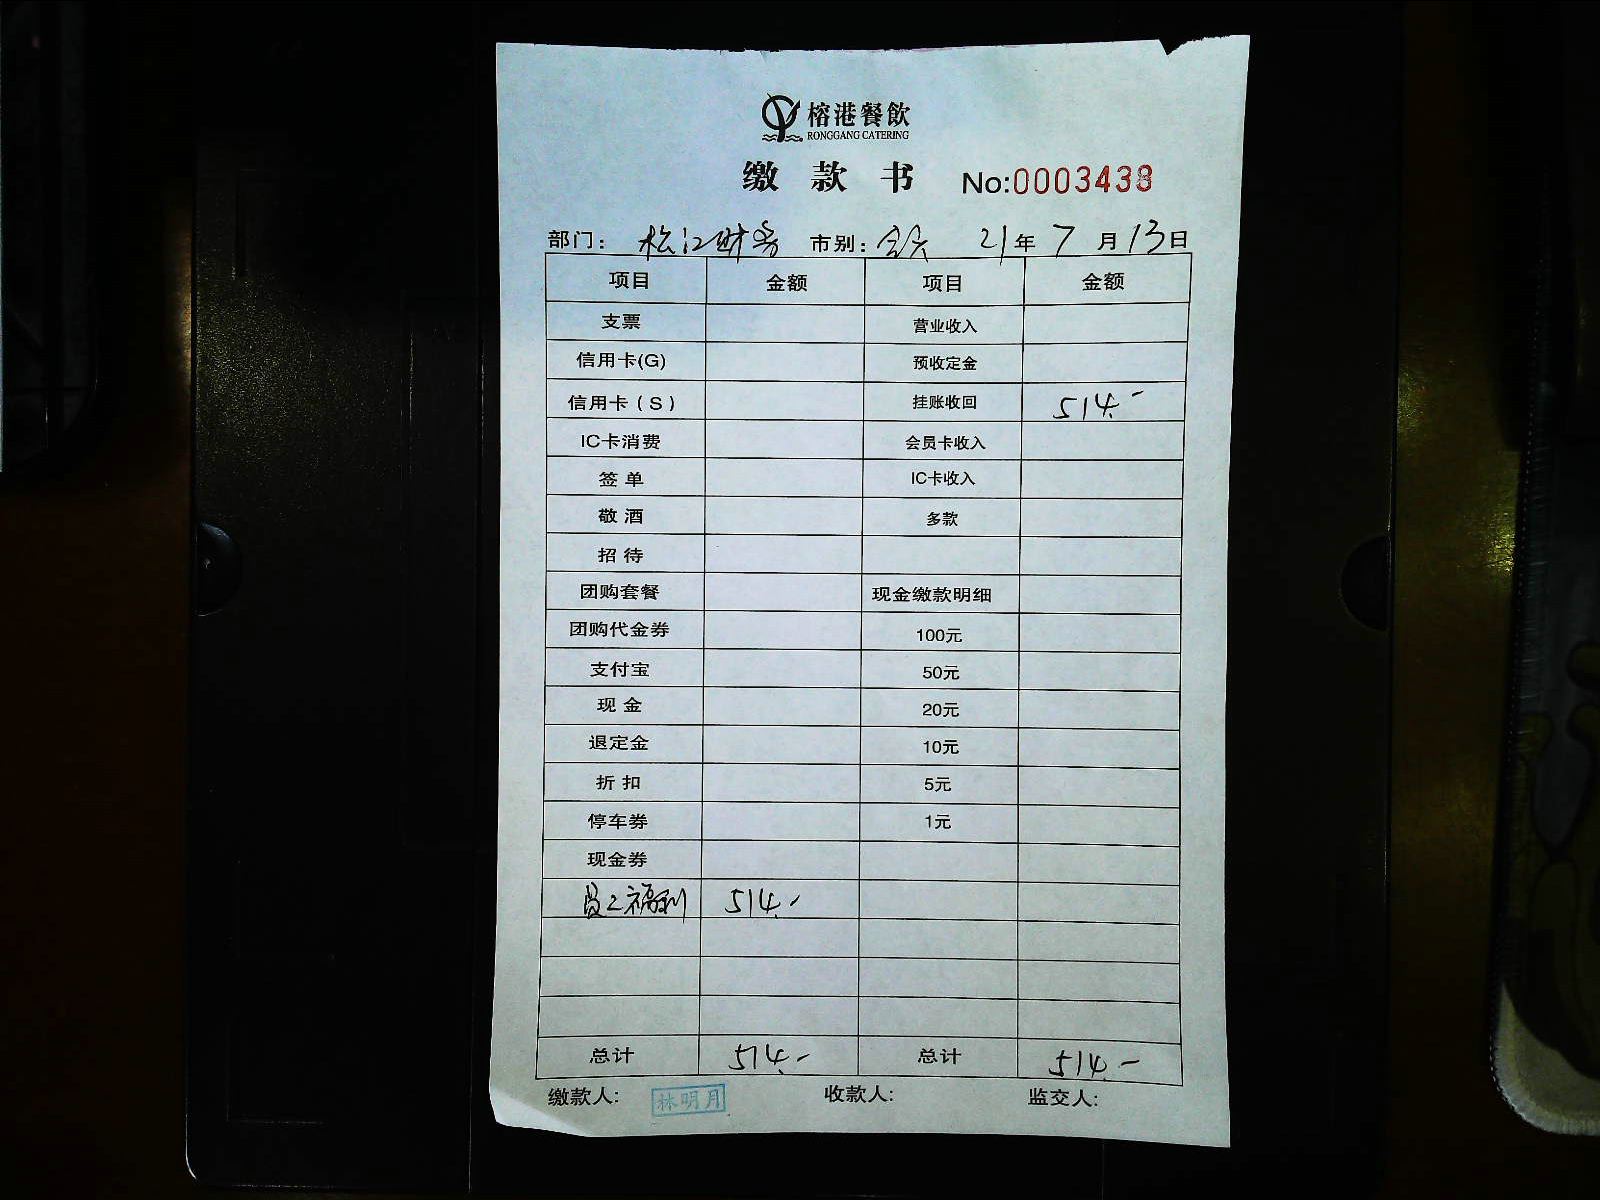 榕港餐飲
RONGGANG CATERING
缴 款 书 No:0003438
部门: 松江财务 市别: 21年 7月 13日
项目 金额 项目 金额
支票 营业收入
信用卡(G) 预收定金
信用卡(S) 挂账收回 514.-
IC卡消费 会员卡收入
签单 IC卡收入
敬酒 多款
招待
团购套餐 现金缴款明细
团购代金券 100元
支付宝 50元
现金 20元
退定金 10元
折扣 5元
停车券 1元
现金券
员工福利 514.-
总计 514.- 总计 514.-
缴款人: 林明月 收款人: 监交人: